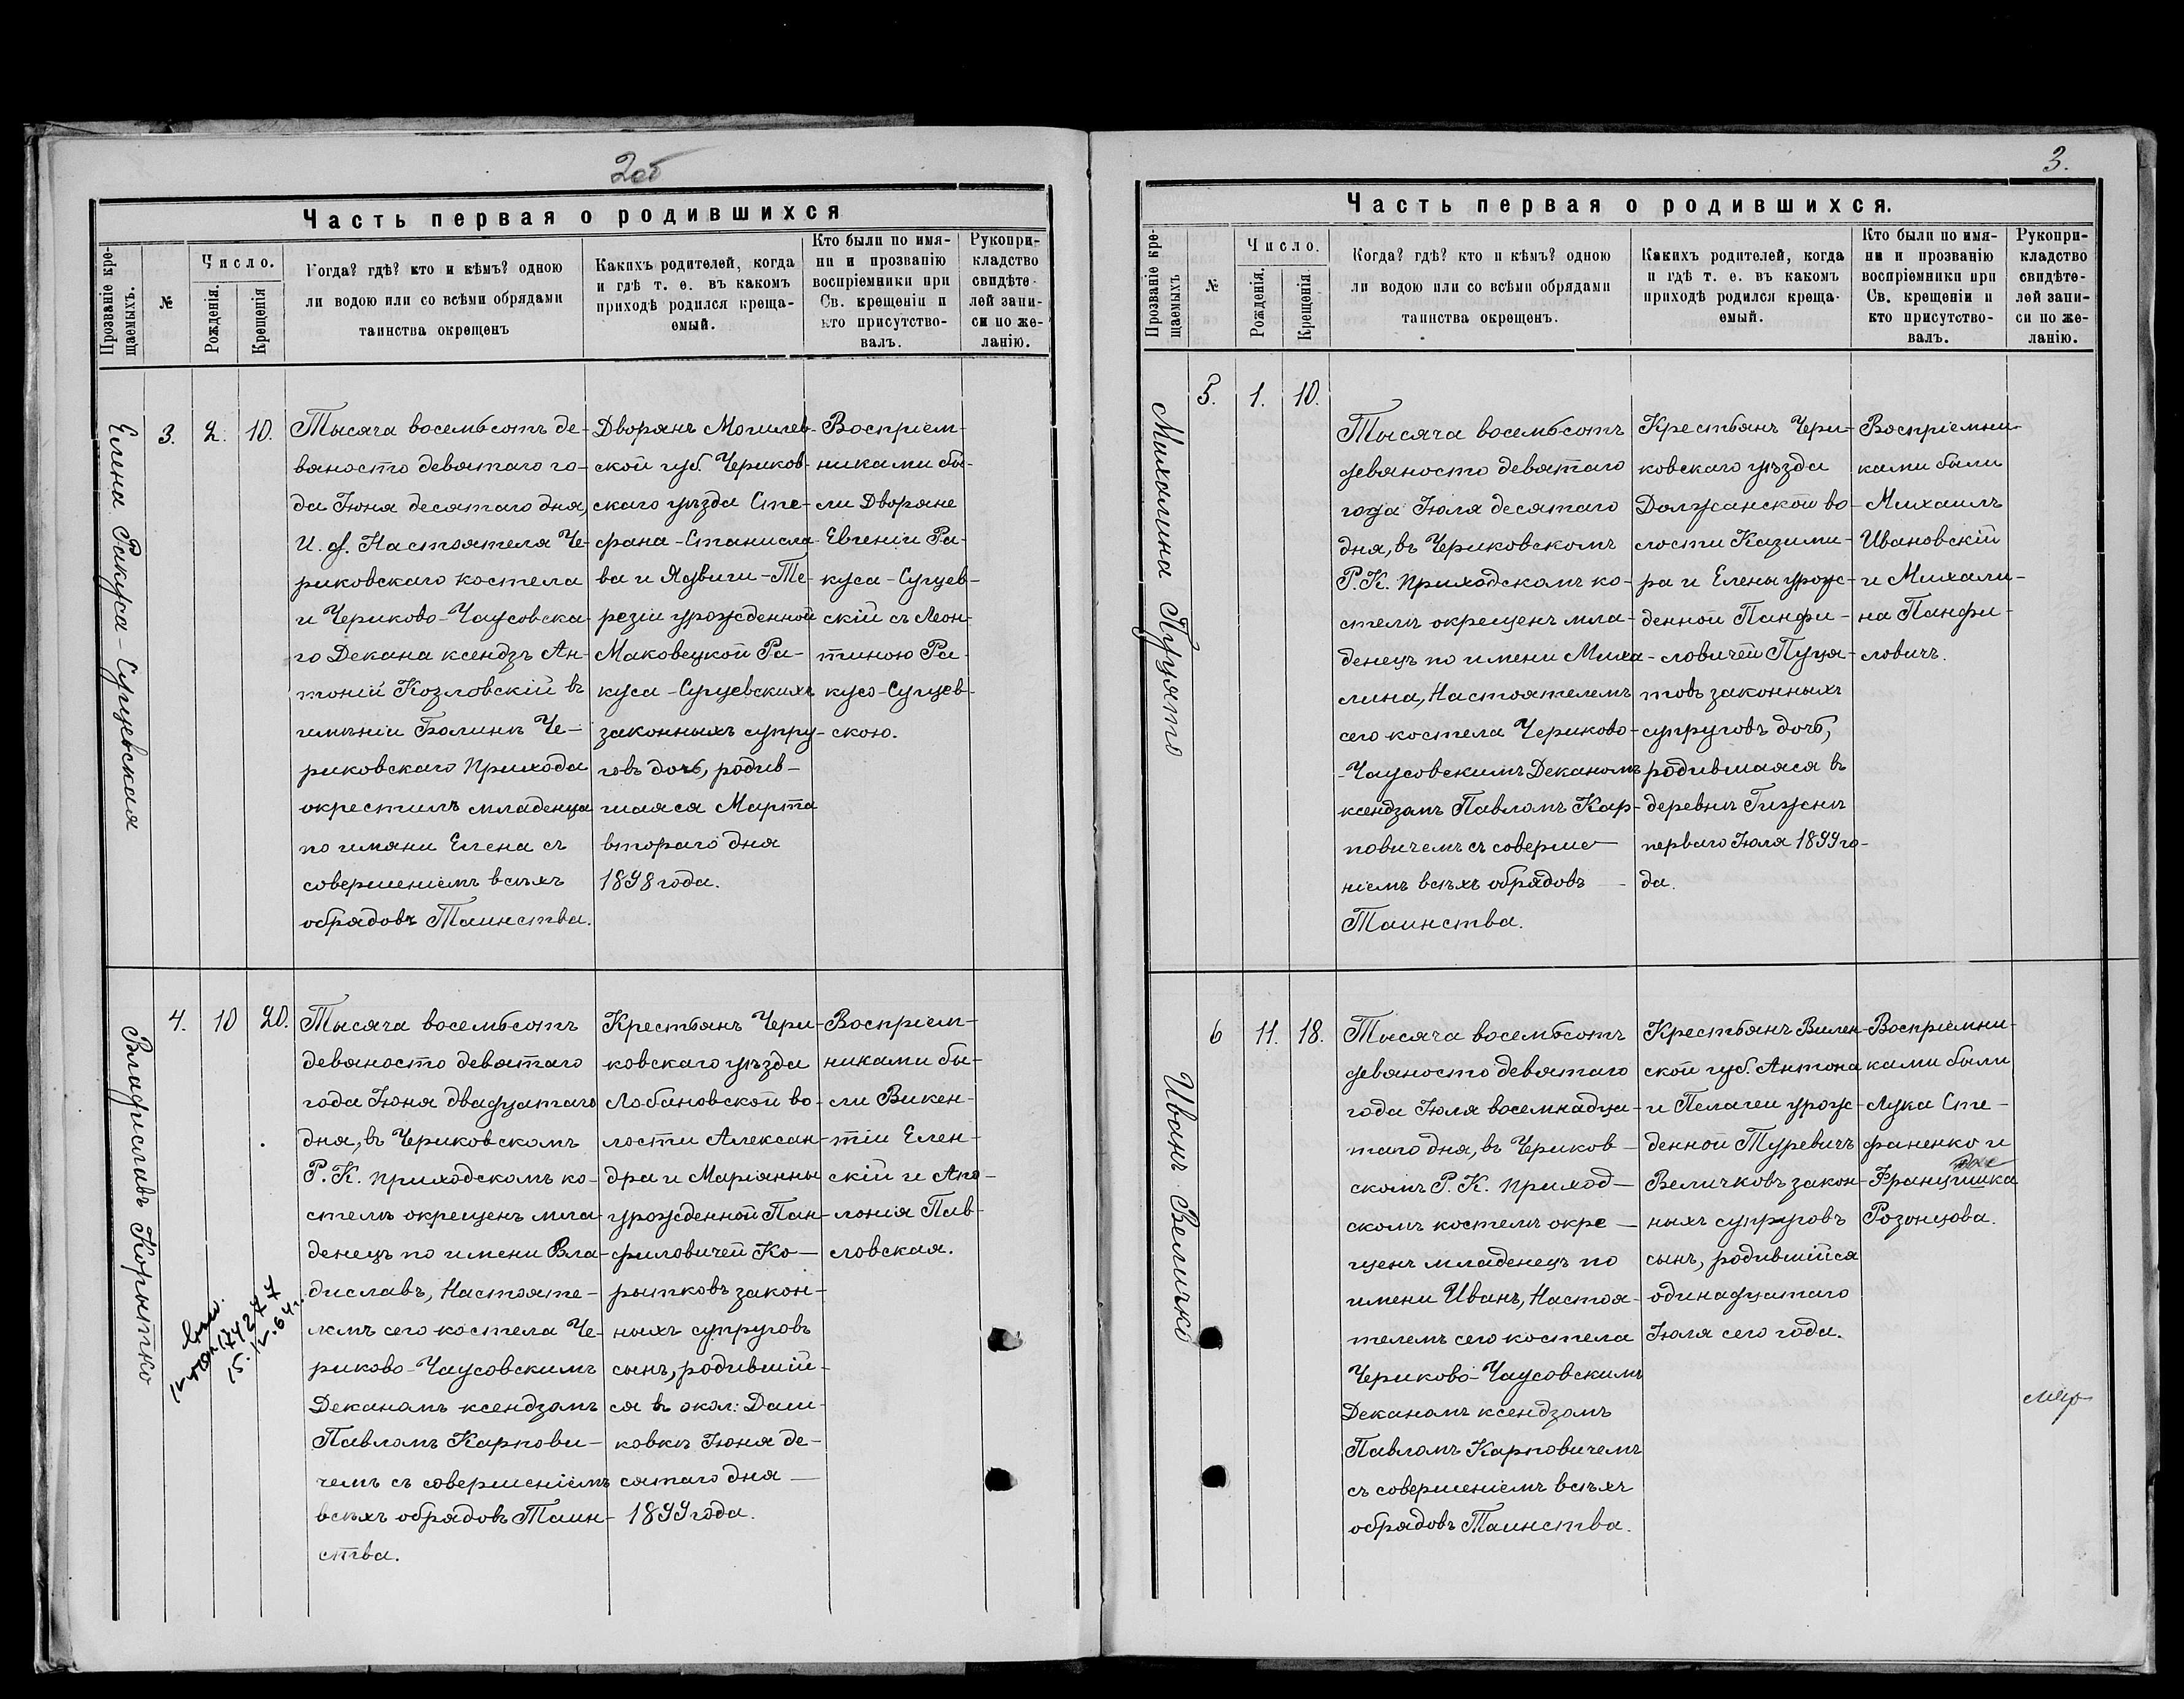 2об
Часть первая о родившихся
Прозваніе кре-
щаемыхъ.
№
Число.
Рожденія.
Крещенія
Когда? гдѣ? кто и кѣмъ? одною
ли водою или со всѣми обрядами
таинства окрещенъ
Какихъ родителей, когда
и гдѣ т. е. въ какомъ
приходѣ родился креща-
емый.
Кто были по имя-
ни и прозванію
воспріемники при
Св. крещеніи и
кто присутство-
валъ.
Рукопри-
кладство
свидѣте-
лей запи-
си по же-
ланію.
Елена Ракуса-Сущевская
3.
2.
10.
Тысяча восемьсотъ де-
вяносто девятаго го-
да Іюня десятаго дня,
И. д. Настоятеля Че-
риковскаго костела
и Чериково-Чаусовска-
го Декана ксендзъ Ан-
тоній Козловскій въ
имѣніи Болинѣ Че-
риковскаго Прихода
окрестилъ младенца
по имяни Елена съ
совершеніемъ всѣхъ
обрядовъ Таинства.
Дворянъ Могилев-
ской губ. Чериков-
скаго уѣзда Сте-
фана-Станисла-
ва и Ядвиги-Те-
резіи урожденной
Маковецкой Ра-
куса-Сущевскихъ
законныхъ супру-
говъ дочь, родив-
шаяся Марта
втораго дня
1898 года.
Воспріем-
никами бы-
ли Дворяне
Евгеній Ра-
куса-Сущев-
скій съ Леон-
тиною Ра-
куса-Сущев-
скою.
Владиславъ Корытко
4.
10
20.
Тысяча восемьсотъ
девяносто девятаго
года Іюня двадцатаго
дня, въ Чериковскомъ
Р. К. приходскомъ ко-
стелѣ окрещенъ мла-
денецъ по имени Вла-
диславъ, Настояте-
лемъ сего костела Че-
риково-Чаусовскимъ
Деканомъ ксендзомъ
Павломъ Карпови-
чемъ съ совершеніемъ
всѣхъ обрядовъ Таин-
ства.
Крестьянъ Чери-
ковскаго уѣзда
Лобановской во-
лости Алексан-
дра и Маріанны
урожденной Пан-
филовичей Ко-
рытковъ закон-
ныхъ супруговъ
сынъ, родившій-
ся въ окол: Даш-
ковкѣ Іюня де-
сятаго дня
1899 года.
Воспріем-
никами бы-
ли Викен-
тій Елен-
скій и Апо-
лонія Пав-
ловская.
174277
15.12.64г.
3.
Часть первая о родившихся.
Прозваніе кре-
щаемыхъ
№
Число.
Рожденія.
Крещенія.
Когда? гдѣ? кто и кѣмъ? одною
ли водою или со всѣми обрядами
таинства окрещенъ.
Какихъ родителей, когда
и гдѣ т. е. въ какомъ
приходѣ родился креща-
емый.
Кто были по имя-
ни и прозванію
воспріемники при
Св. крещеніи и
кто присутство-
валъ.
Рукопри-
кладство
свидѣте-
лей запи-
си по же-
ланію.
Михалина Пуцято
5.
1.
10.
Тысяча восемьсотъ
девяносто девятаго
года Іюля десятаго
дня, въ Чериковскомъ
Р. К. приходскомъ ко-
стелѣ окрещенъ мла-
денецъ по имени Миха-
лина, Настоятелемъ
сего костела Чериково-
-Чаусовскимъ Деканомъ
ксендзомъ Павломъ Кар-
повичемъ съ соверше-
ніемъ всѣхъ обрядовъ
Таинства.
Крестьянъ Чери-
ковскаго уѣзда
Должанской во-
лости Казими-
ра и Елены урож-
денной Панфи-
ловичей Пуця-
товъ законныхъ
супруговъ дочь,
родившаяся въ
деревнѣ Гижнѣ
перваго Іюля 1899 го-
да.
Воспріемни-
ками были
Михаилъ
Ивановскій
и Михали-
на Панфи-
ловичъ.
Иванъ Величко
6
11.
18.
Тысяча восемьсотъ
девяносто девятаго
года Іюля восемнадца-
таго дня, въ Чериков-
скомъ Р. К. приход-
скомъ костелѣ окре-
щенъ младенецъ по
имени Иванъ, Настоя-
телемъ сего костела
Чериково-Чаусовскимъ
Деканомъ ксендзомъ
Павломъ Карповичемъ
съ совершеніемъ всѣхъ
обрядовъ Таинства.
Крестьянъ Вилен-
ской губ. Антона
и Пелагеи урож-
денной Туревичъ
Величковъ закон-
ныхъ супруговъ
сынъ, родившійся
одинадцатаго
Іюля сего года.
Воспріемни-
ками были
Лука Сте-
фаненко и
Францишка
Розонцова.